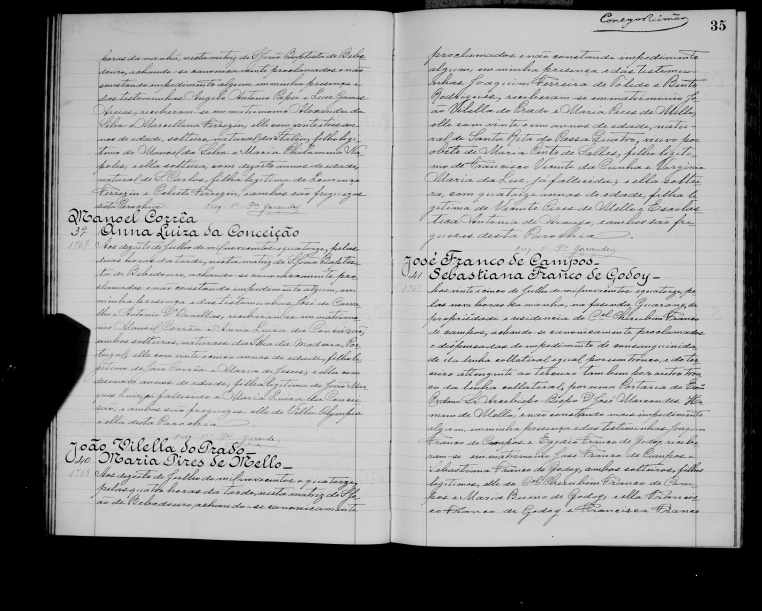 horas da manhã, nesta matriz de S. João Baptista de Bebe-
douro, achando-se canonicamente proclamados e não
constando impedimento algum, em minha presença e
das testemunhas Angelo Antonio Papa e Luiz
receberam-se em matrimonio Alexandre da
Silva e Marcellina Ferregin, elle com vinte tres an-
nos de edade, solteiro, natural da Italia, filho legi-
timo de Manoel da Silva e Maria Philomena Na-
poles, e ella solteira, com dezoito annos de edade,
natural de S. Carlos, filha legitima de Lourenço
Ferregin e Celeste Ferregin, e ambos são freguezes
desta Parochia.
Manoel Corrêa
39 Anna Luiza da Conceição
Aos dezoito de Julho de mil novecentos e quatorze, pelas
duas horas da tarde, nesta matriz de S. João Baptis-
ta de Bebedouro, achando-se canonicamente pro-
clamados e não constando impedimento algum, em
minha presença e das testemunhas José de
e Antonio receberam-se em matrimo-
nio Manoel Corrêa e Anna Luiza da Conceição,
ambos solteiros, naturaes da Ilha da Madeira, Por-
tugal, elle com vinte e cinco annos de edade, filho le-
gitimo de João Corrêa e Maria de Jesus, e ella com
annos de edade, filha legitima de João
e Maria Luiza da Concei-
ção, e ambos são freguezes elle de Villa Olympia
e ella desta Parochia.
João Vilella do Prado
40 Maria Pires de Mello
Aos dezoito de Julho de mil novecentos e quatorze,
pelas quatro horas da tarde, nesta matriz de S. Jo-
ão de Bebedouro, achando-se canonicamente
Conego
35
proclamados e não constando impedimento
algum, em minha presença e das testemu-
nhas Joaquim Ferreira de Toledo e Bento
Rodrigues, receberam-se em matrimonio Jo-
ão Vilella do Prado e Maria Pires de Mello,
elle com vinte e um annos de edade, natu-
ral de Santa Rita do Passa Quatro, viuvo por
obito de Maria Pinto de Salles, filho legiti-
mo de Francisco Vicente da Cunha e Virginia
Maria da Luz, já fallecida, e ella soltei-
ra, com quatorze annos de edade, filha le-
gitima de Vicente Pires de Mello e Escolas-
tica Antonia de Araujo, e ambos são fre-
guezes desta Parochia
José Franco de Campos
41 Sebastiana Franco de Godoy
Aos vinte e cinco de Julho de mil novecentos e quatorze, pe-
las nove horas da manhã, na fazenda de
propriedade e residencia do Cel. Cherubim Franco
de Campos, achando-se canonicamente proclamados
e dispensados do impedimento de consanguinida-
de da linha collateral egual por um tronco, e do ter-
ceiro attingente ao tambem por outro tron-
co da linha collateral, por uma Portaria do Exmo
Bispo D. José Marcondes Ho-
mem de Mello, e não constando mais impedimento
algum, em minha presença e das testemunhas, Joaquim
Franco de Campos e Franco de Godoy, recebe-
ram-se em matrimonio José Franco de Campos e
Sebastiana Franco de Godoy, ambos solteiros, filhos
legitimos, elle do Cel. Cherubim Franco de Cam-
pos e Maria Bueno de Godoy, e ella Francis-
co Franco de Godoy e Francisca Franco